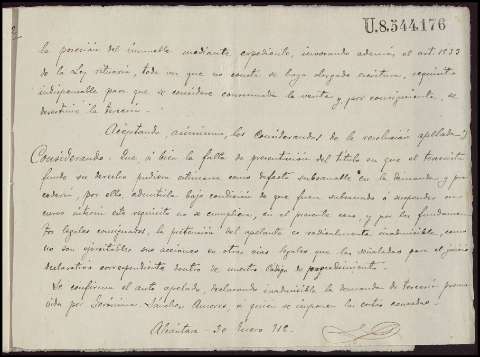 U.8.544.176
la posesión del inmueble mediante expediente, invocando además el art. 1533
de la Ley rituaria, toda vez que no consta se haya otorgado escritura, requisito
indispensable para que se considere consumada la venta y, por consiguiente, se
desestima la tercería.
Aceptando, asimismo, los Considerandos de la resolución apelada y
Considerando: Que, si bien la falta de presentación del título en que el tercerista
funde su derecho pudiera estimarse como defecto subsanable en la demanda y pro
cedería, por ello, admitirla bajo condición de que fuera subsanado o suspender su
curso ínterin este requisito no se cumpliera, en el presente caso, y por los fundamen
tos legales consignados, la petición del apelante es radicalmente inadmisible, como
no son ejercitables sus acciones en otras vías legales que las señaladas para el juicio
declarativo correspondiente dentro de nuestro Código de procedimiento.
Se confirma el auto apelado, declarando inadmisible la demanda de tercería promo
vida por Jerónima Sánchez Amores, a quien se imponen las costas causadas.
Alcántara - 30 Enero 912.